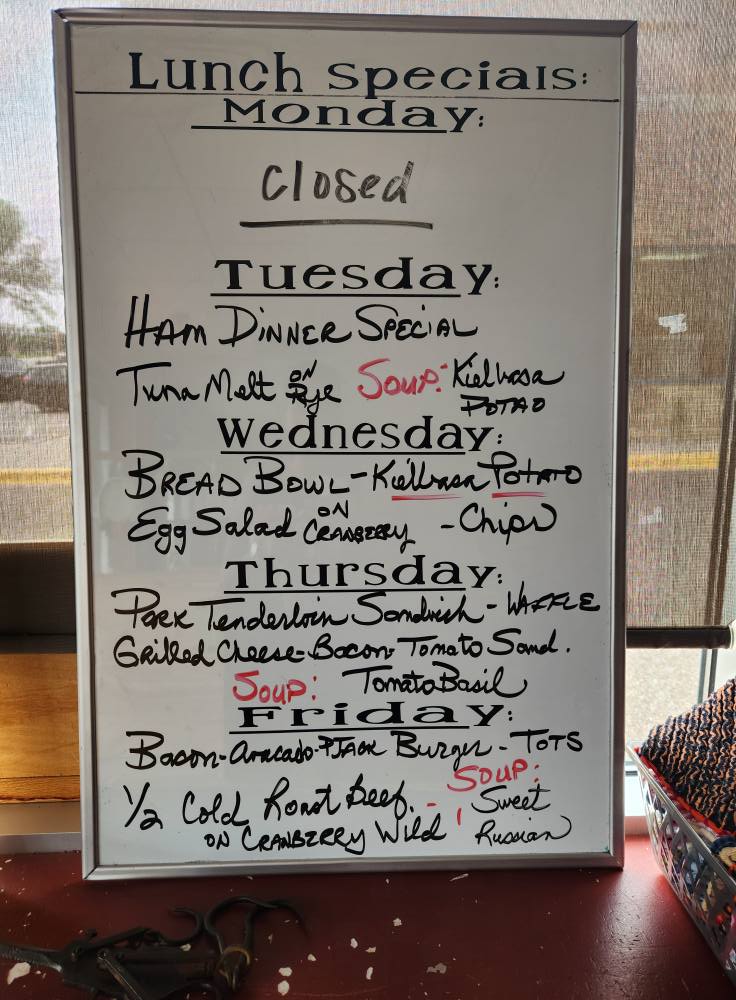 Lunch Specials:
Monday:
Closed
Tuesday:
Ham Dinner Special
Tuna Melt on Rye Soup: Kielbasa
Potao
Wednesday:
Bread Bowl - Kielbasa Potato
Egg Salad on Cranberry - Chips
Thursday:
Pork Tenderloin Sandwich - Waffle
Grilled Cheese - Bacon - Tomato Sand.
Soup: Tomato Basil
Friday:
Bacon - Avacado - PJack Burger - Tots
Soup:
1/2 Cold Roast Beef. - Sweet
on Cranberry Wild Russian